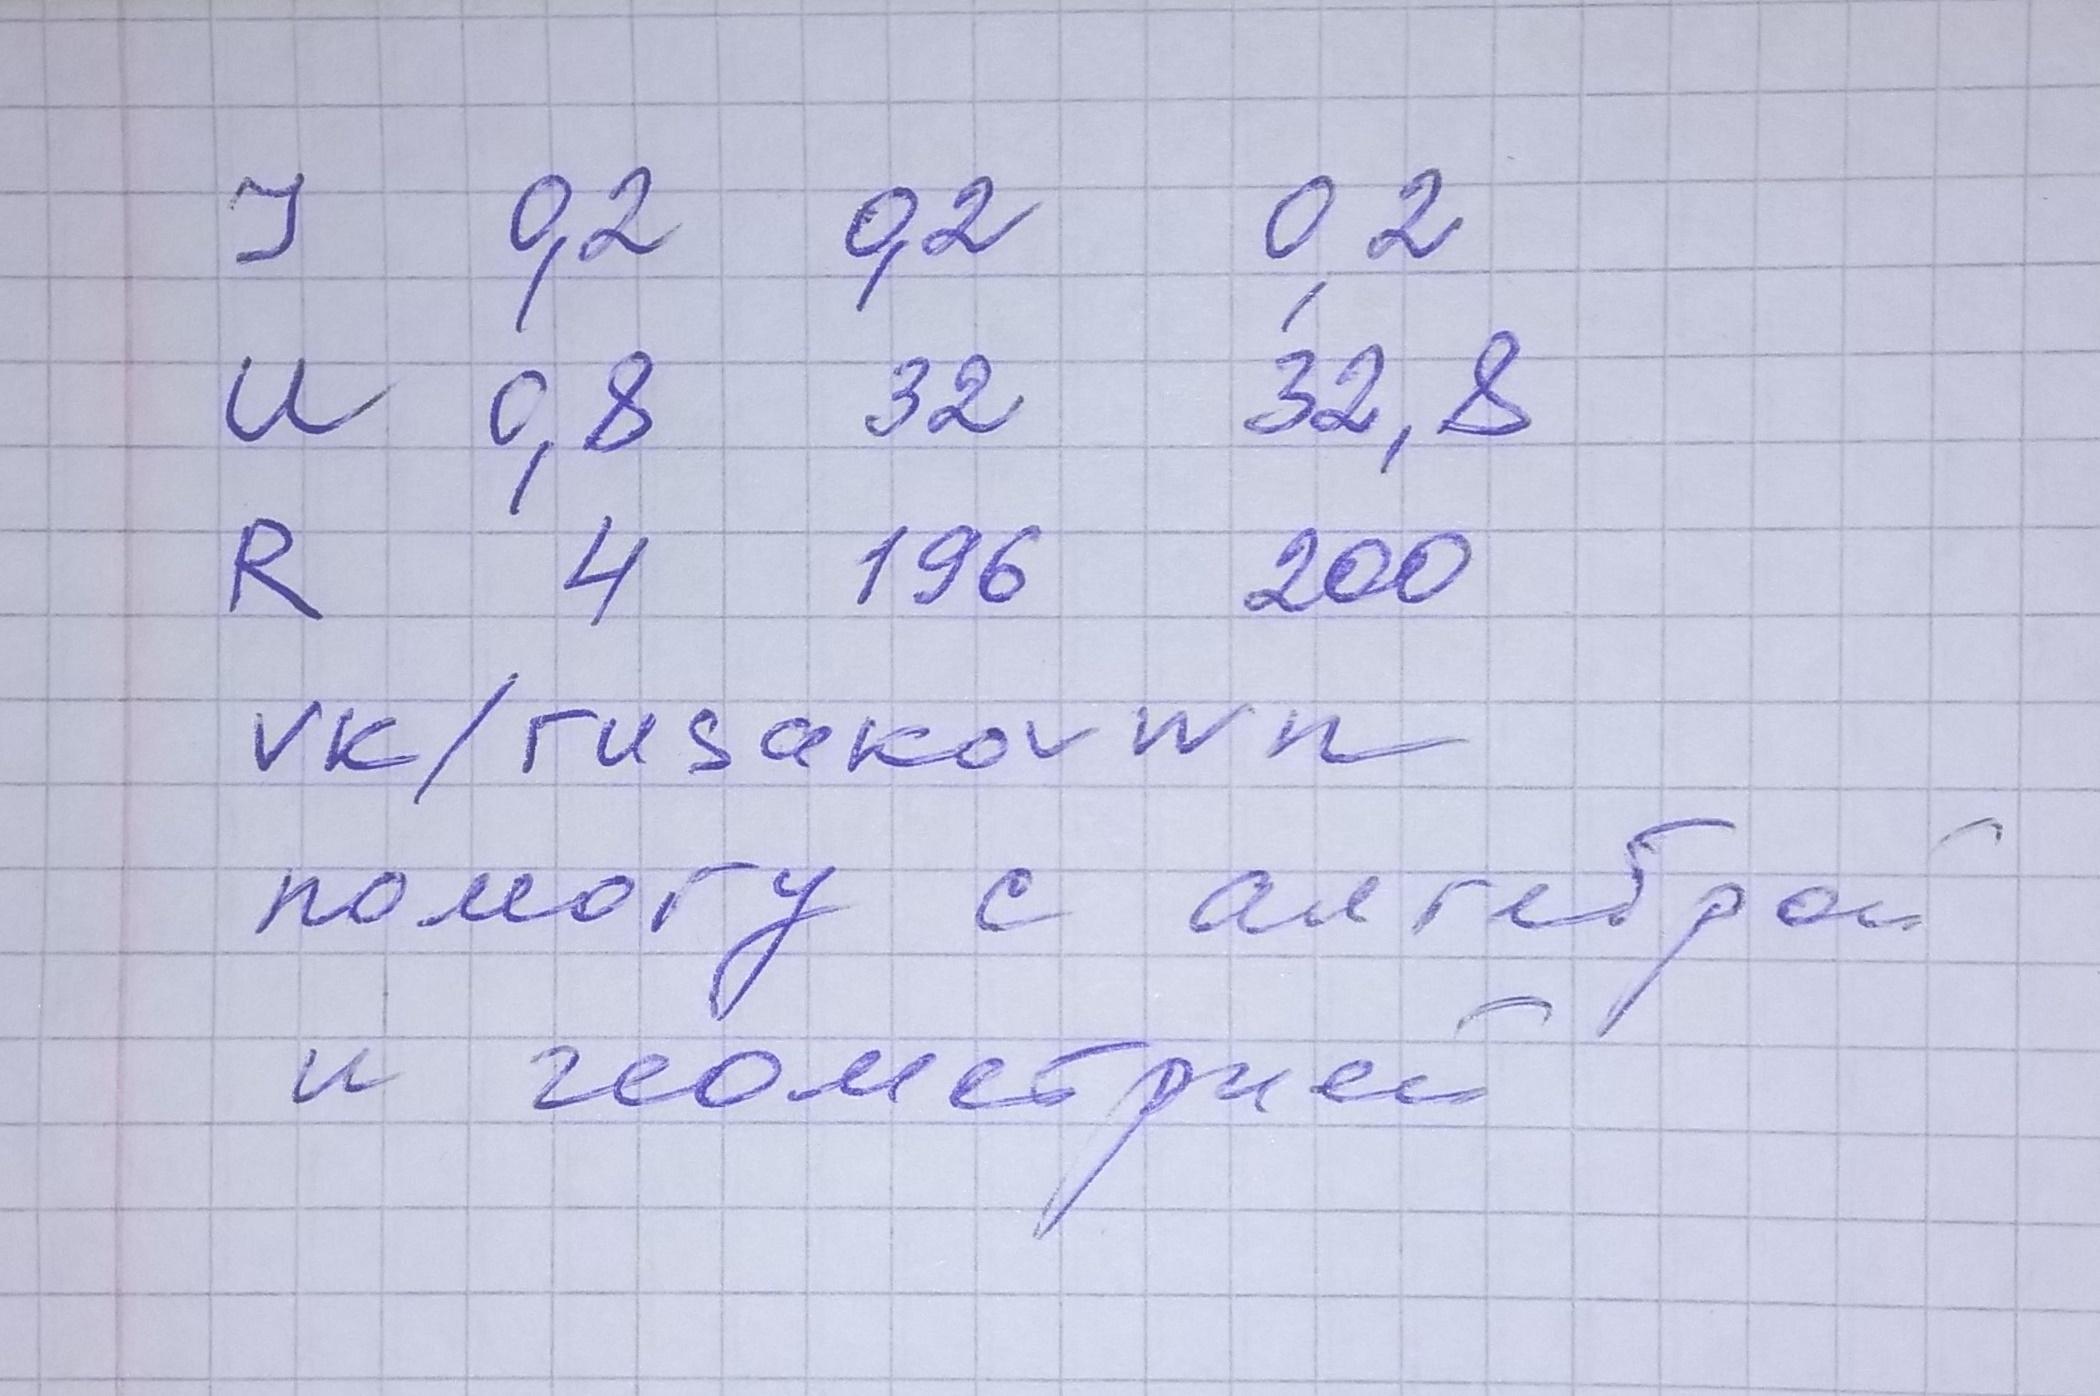 I 0,2 0,2 0,2
U 0,8 32 32,8
R 4 196 200
vk/rusakovwn
помогу с алгеброй
и геометрией